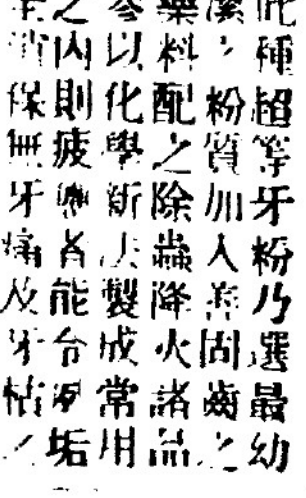 此種超等牙粉乃選最幼
潔之粉質加入善固齒之
藥料配之除蟲降火諸品
參以化學新法製成常用
之內則疲 者能台 垢
保無牙痛及牙枯之